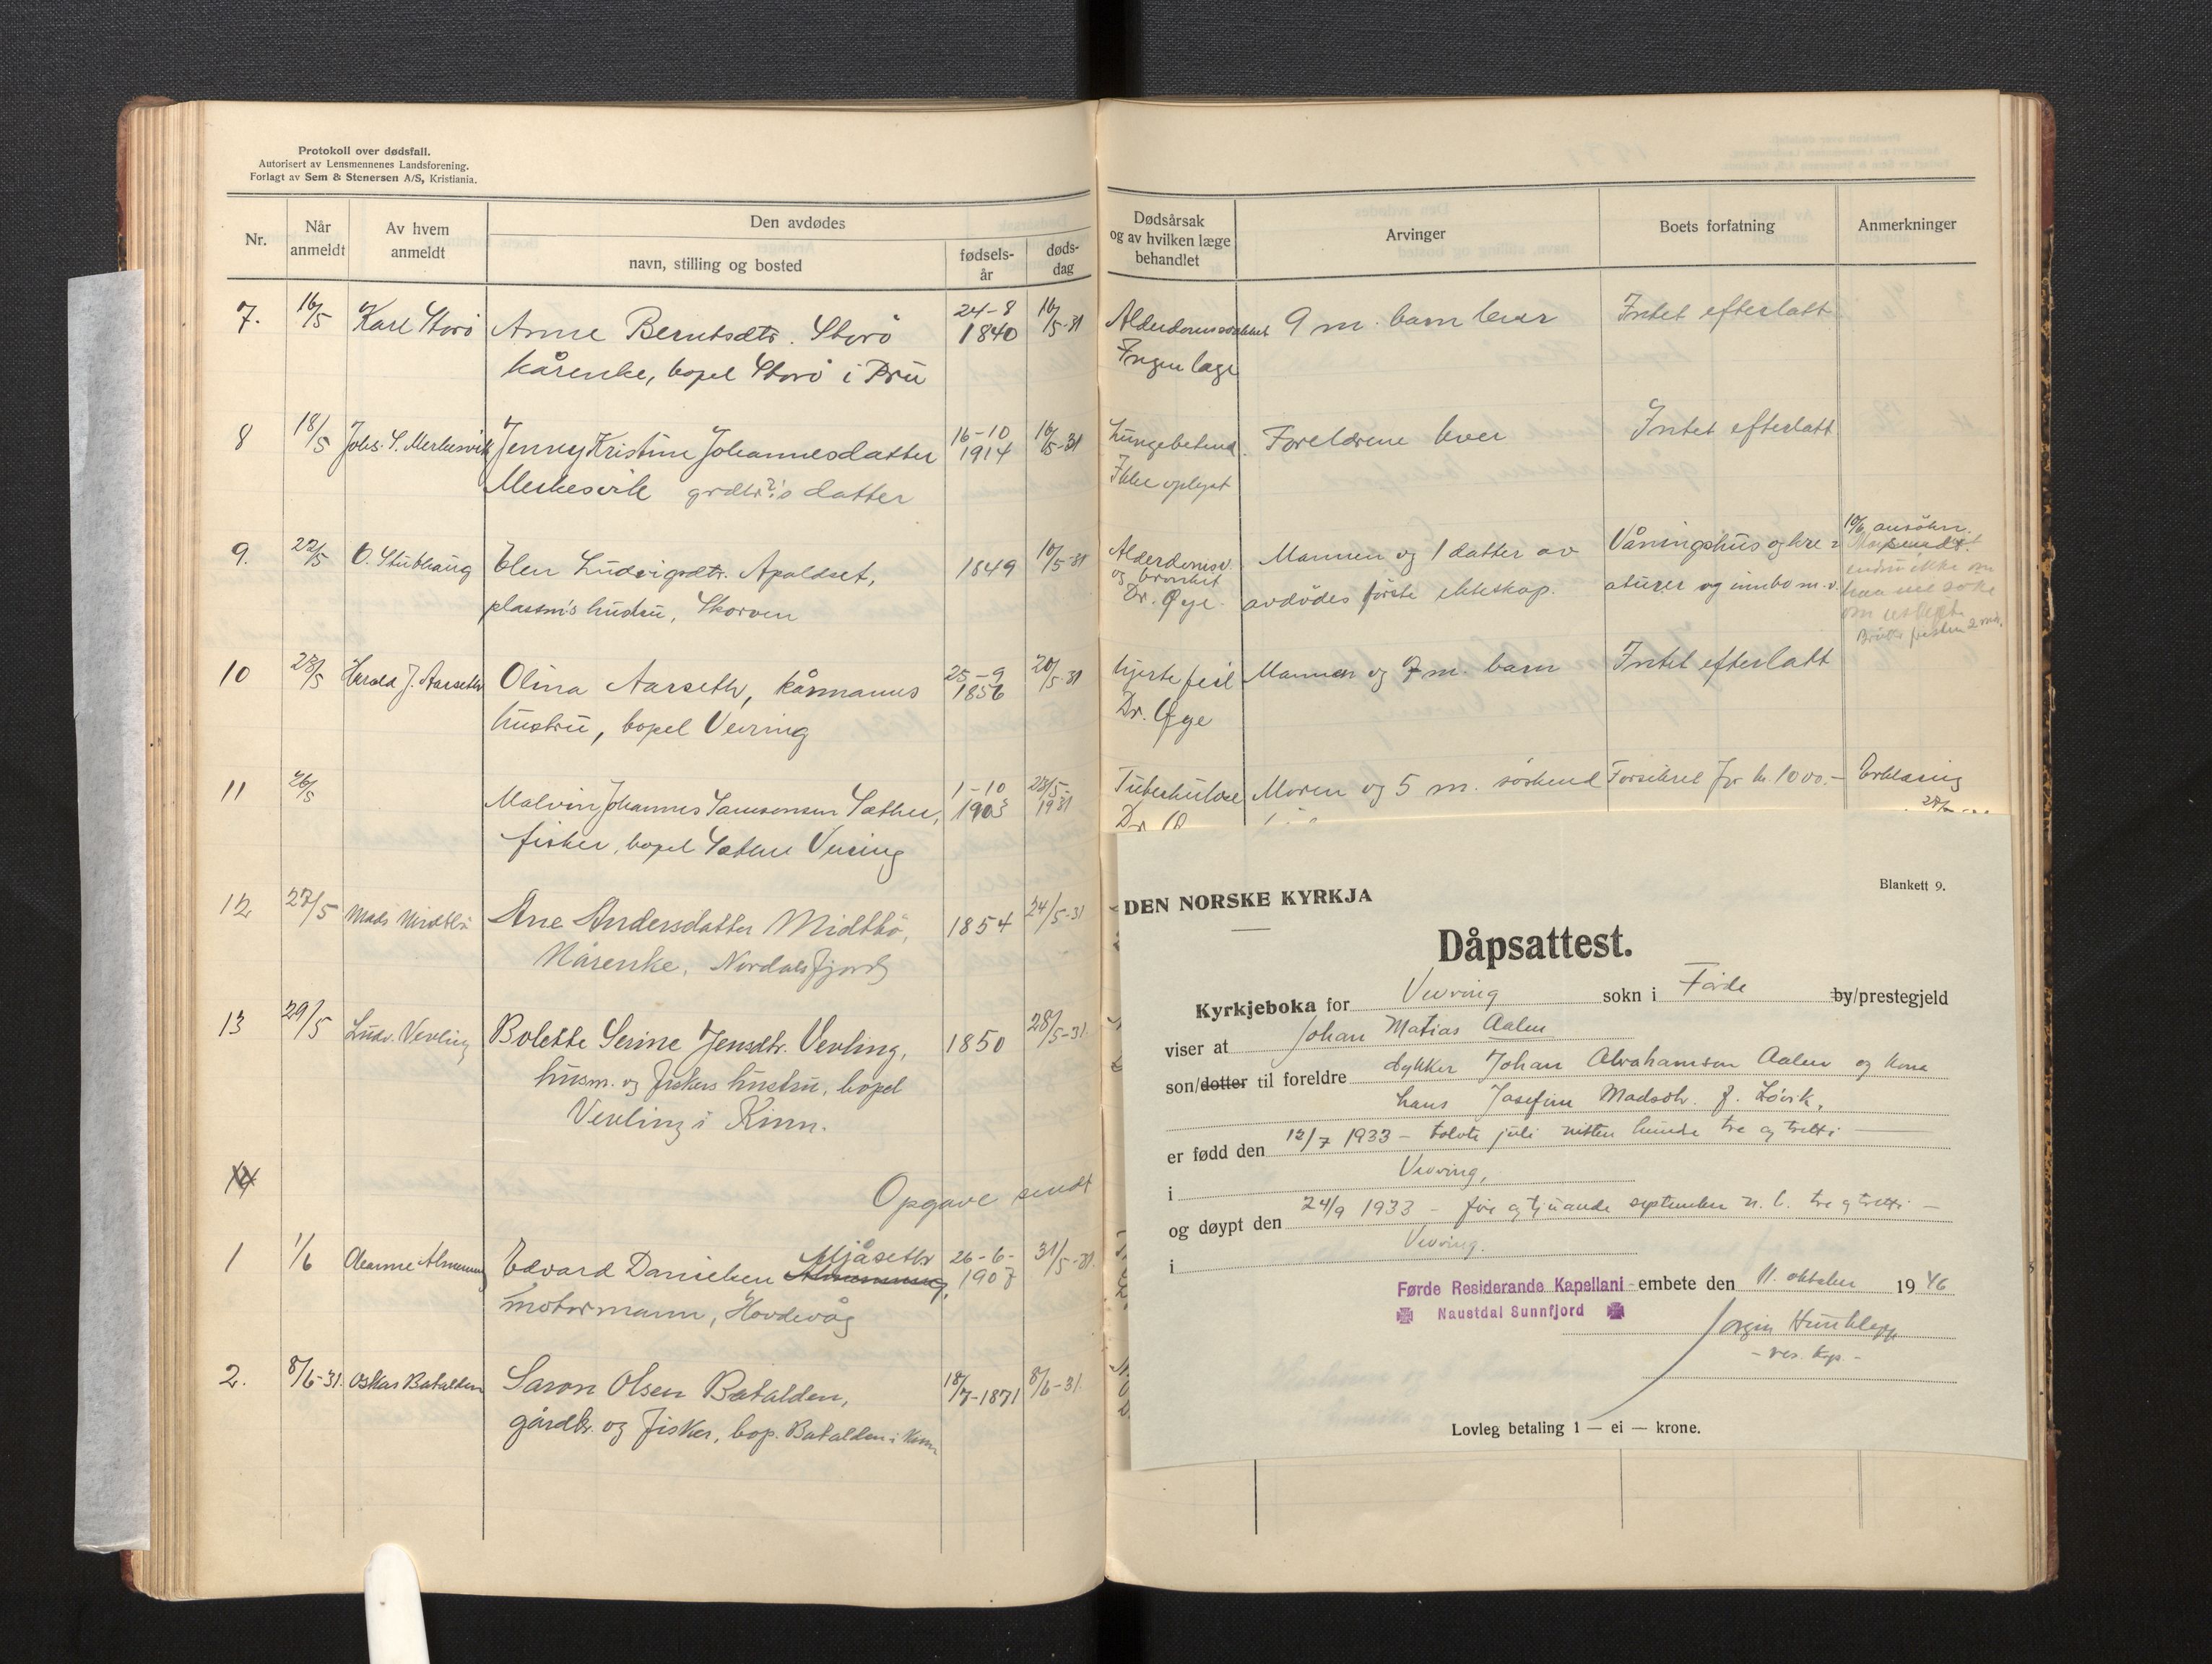 Protokoll over dødsfall.
Autorisert av Lensmennenes Landsforening.
Forlagt av Sem & Stenersen A/S, Kristiania.
Nr.
Når anmeldt
Av hvem anmeldt
Den avdødes
navn, stilling og bosted
fødsels-år
døds-dag
Dødsårsak og av hvilken læge behandlet
Arvinger
Boets forfatning
Anmerkninger
7. 16/5 Karl Storø Anne Berntsdtr. Storø 24-8 1840 16/5-31 9 m. barn lever Intet efterlatt
kårenke, bopel Storø i Bru Ingen læge
8 18/5 Johs. S. Merkesvik Jenny Kristine Johannesdatter 16-10 1914 16/5-31 Lungebetend. Foreldrene lever Intet efterlatt
Merkesvik datter Ikke oplyst
9. 22/5 O. Stubhaug Elen Ludvigsdtr. Apaldset, 1849 10/5-31 Alderdomssv. og bronkit Mannen og 1 datter av Våningshus og kre-
plassm's hustru, Skorven Dr. Øye avdødes første ekteskap. aturer og innbo m.v.
10/6 sendt.
10 23/5 Harald J. Aarseth Olina Aarseth, kårmanns 25-9 1856 20/5-31 hjertefeil Mannen og 7 m. barn Intet efterlatt
hustru, bopel Vevring Dr. Øye
11 26/5 Malvin Johannes Samsonsen Sæther, 1-10 1903 23/5-1931 Tuberkulose Moren og 5 m. søskend Forsikret for kr. 1000.- Erklæring
fisker, bopel Sæther Vevring Dr.
12 27/5 Mads Midtbø Ane Andersdatter Midtbø, 1854 24/5-31
Kårenke, Nordalsfjord
13 29/5 Ludv. Vevling Bolette Serine Jensdtr. Vevling, 1850 28/5-31.
husm. og fiskers hustru, bopel
Vevling i Kinn.
14
Opgave sendt
1 1/6 Edvard Danielsen Mjåseth 26-6-1907 31/5-31.
motormann, Hovdevåg
2. 8/6-31. Oskar Batalden Saron Olsen Batalden, 18/7-1871 8/6-31.
gårdbr. og fisker, bop. Batalden i Kinn
Blankett 9.
DEN NORSKE KYRKJA
Dåpsattest.
Kyrkjeboka for Vevring sokn i Førde by/prestegjeld
viser at Johan Matias Aalen
son/dotter til foreldre dykker Johan Abrahamsen Aalen og kona
hans Josefine Madsdtr. f. Løvik.
er fødd den 12/7 1933 - tolvte juli nitten hundre tre og tretti
i Vevring,
og døypt den 24/9 1933 - fire og tjuande september n. h. tre og tretti -
i Vevring.
Førde Residerande Kapellani - embete den 11. oktober 1946
Naustdal Sunnfjord
- res. kap. -
Lovleg betaling 1 — ei — krone.